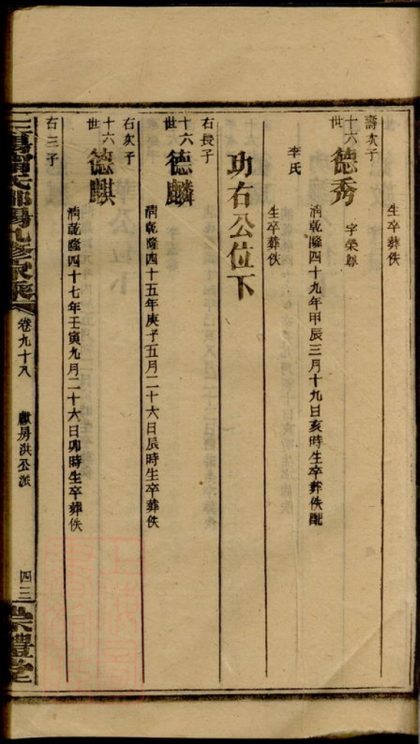 生卒葬佚
壽次子
十六世 德秀 字榮尊
清乾隆四十九年甲辰三月十九日亥時生卒葬佚配
李氏
生卒葬佚
功右公位下
右長子
十六世 德麟
清乾隆四十五年庚子五月二十六日辰時生卒葬佚
右次子
十六世 德麒
清乾隆四十七年壬寅九月二十六日卯時生卒葬佚
右三子
卷九十八
獻房洪公派
四三
崇禮堂